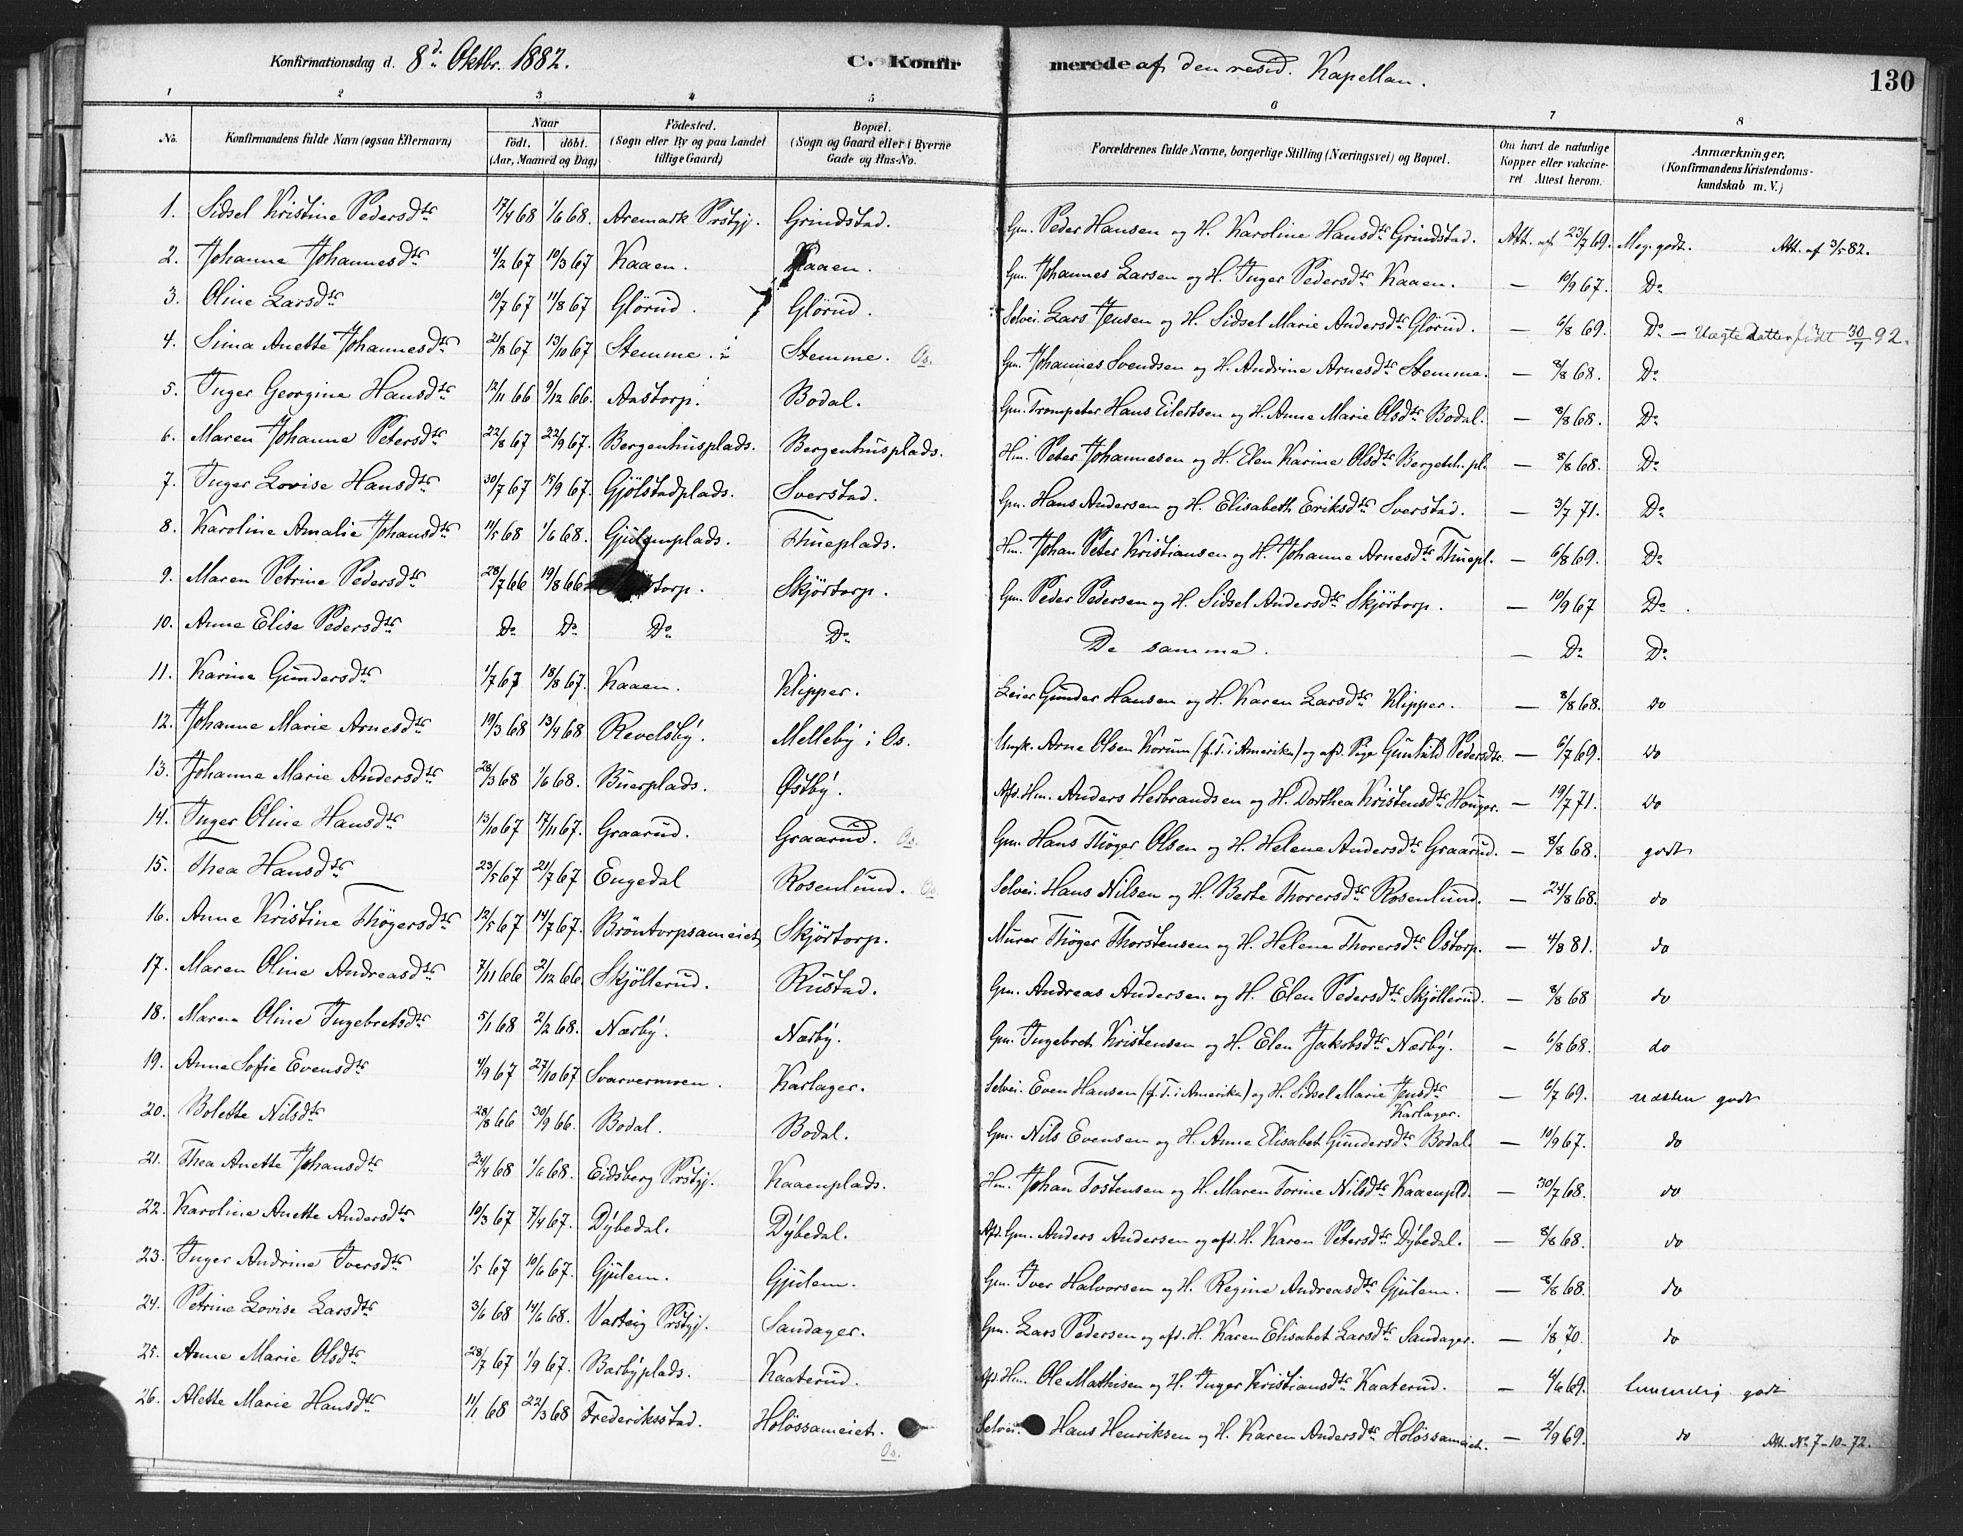 Konfirmationsdag d. 8d. Oktbr. 1882. C. Konfirmerede af den resid. Kapellan. 130
1 2 3 4 5 6 7 8
No. Konfirmandens fulde Navn (ogsaa Efternavn) Naar födt. döbt. (Aar, Maaned og Dag) Födested. (Sogn eller By og paa Landet tillige Gaard) Bopæl. (Sogn og Gaard eller i Byerne Gade og Hus-No. Forældrenes fulde Navne, borgerlige Stilling (Næringsvei) og Bopæl. Om havt de naturlige Kopper eller vakcineret Attest herom. Anmærkninger. (Konfirmandens Kristendomskundskab m. V.)
1. Sidsel Kristine Pedersdtr 17/4 68 1/6 68. Aremark Prstgj. Grindstad. Gm. Peder Hansen og H. Karoline Hansdtr Grindstad. Att. af 23/7 69. Meg. godt. Att. af 3/5 82.
2. Johanne Johannesdtr 4/2 67 10/3 67 Kaaen. Kaaen. Gm. Johannes Larsen og H. Inger Pedersdtr Kaaen. — 10/9 67. Do
3. Oline Larsdtr 10/7 67 11/8 67 Glörud. Glörud. Selvei. Lars Jensen og H. Sidsel Marie Andersdtr Glörud. — 6/8 69. Do — Uægte datter födt 30/7 92.
4. Sina Anette Johannesdtr 21/8 67 13/10 67 Stemme. Stemme. Os. Gm. Johannes Svendsen og H. Andrine Arnesdtr Stemme. — 8/8 68. Do
5. Inger Georgine Hansdtr 12/11 66 9/12 66. Aastorp. Bodal. Gm. Trompeter Hans Eilertsen og H. Anne Marie Olsdtr Bodal. — 8/8 68. Do
6. Maren Johanne Petersdtr 22/8 67 22/9 67. Bergenhusplads. Bergenhusplads. Hm. Peter Johannesen og H. Elen Karine Olsdtr Bergenh.pl. — 8/8 68. Do
7. Inger Lovise Hansdtr 30/7 67 15/9 67. Gjölstadplads. Sverstad. Gm. Hans Andersen og H. Elisabeth Eriksdtr Sverstad. — 3/7 71. Do
8. Karoline Amalie Johansdtr 11/5 68 1/6 68. Gjulemplads. Thueplads. Hm. Johan Peter Kristiansen og H. Johanne Arnesdtr Thuepl. — 6/8 69. Do
9. Maren Petrine Pedersdtr 28/7 66 19/8 66 torp. Skjörtorp. Gm. Peder Pedersen og H. Sidsel Andersdtr Skjörtorp. — 10/9 67 Do.
10. Anne Elise Pedersdtr Do Do Do Do De samme. — Do Do
11. Karine Gundersdtr 1/7 67 18/8 67. Kaaen. Klipper. Leier Gunder Hansen og H. Karen Larsdtr Klipper. — 8/8 68. Do
12. Johanne Marie Arnesdtr 19/3 68 13/4 68 Revelsby. Melleby i Os. Ungk. Arne Olsen Korum (f. T. i Amerika) og afd. Pige Gunhild Pedersdtr. — 6/7 69. Do
13. Johanne Marie Andersdtr 28/3 68 1/6 68. Buerplads. Østby. Afd. Hm. Anders Herbrandsen og H. Dorthea Kristensdtr Houger. — 19/7 71. Do
14. Inger Oline Hansdtr 13/10 67 17/11 67. Graarud. Graarud. Os. Gm. Hans Thöger Olsen og H. Helene Andersdtr Graarud. — 8/8 68. godt
15. Thea Hansdtr 23/5 67 21/7 67 Engedal Rosenlund. Os Selvei. Hans Nilsen og H. Berte Thorersdtr Rosenlund. — 24/8 68. do
16. Anne Kristine Thögersdtr 12/5 67 14/7 67. Bröntorpsameiet Skjörtorp. Murer Thöger Thorstensen og H. Helene Thorersdtr Ostorp. — 4/8 81. do
17. Maren Oline Andreasdtr 7/11 66 2/12 66. Skjöllerud. Rustad. Gm. Andreas Andersen og H. Elen Pedersdtr Skjöllerud. — 8/8 68 do
18. Maren Oline Ingebretsdtr 5/1 68 2/2 68. Nærby. Nærby. Gm. Ingebret Kristensen og H. Elen Jakobsdtr Nærby. — 6/8 68. do
19. Anne Sofie Evensdtr 4/9 67 27/10 67 Svarvermoen. Karlager. Selvei. Even Hansen (f. T. i Amerika) og H. Sidsel Marie Jensdtr Karlager. — 6/7 69. næsten godt
20. Bolette Nilsdtr 28/8 66 30/9 66. Bodal. Bodal. Gm. Nils Evensen og H. Anne Elisabet Gundersdtr Bodal — 10/9 67. do
21. Thea Anette Johansdtr 24/4 68 1/6 68. Eidsberg Prstgj. Kaaenplads. Hm. Johan Tostensen og H. Maren Torine Nilsdtr Kaaenpld. — 30/7 68. do
22. Karoline Anette Andersdtr 10/3 67 7/4 67. Dybedal. Dybedal. Afd. Gm. Anders Andersen og afd. H. Karen Petersdtr Dybedal. — 8/8 68. do
23. Inger Andrine Iversdtr 1/5 67 10/6 67. Gjulem. Gjulem. Gm. Iver Halvorsen og H. Regine Andreasdtr Gjulem. — 8/8 68. do
24. Petrine Lovise Larsdtr 3/6 68 14/6 68. Varteig Prstgj. Sandager. Gm. Lars Pedersen og afd. H. Karen Elisabet Larsdtr Sandager. — 1/8 70. do
25. Anne Marie Olsdtr 28/7 67 1/9 67. Barbyplads. Kaaterud. Afd. Hm. Ole Mathisen og H. Inger Kristiansdtr Kaaterud. — 4/6 69. temmelig godt
26. Alette Marie Hansdtr 11/1 68 22/3 68 Frederiksstad. Holössameiet. Os. Selvei. Hans Henriksen og H. Karen Andersdtr Holössameiet. — 2/9 69. do Att. No 7-10-72.